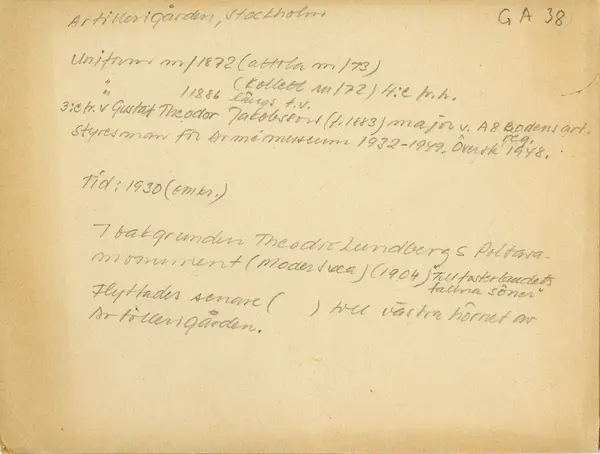 Artillerigården, Stockholm
GA 38
Uniform m/1872 (attila m/73)
" 1886 (Kollett m/72) 4:e fr.h.
längs t.v.
3:e fr. v Gustaf Theodor Jakobsson (f. 1883) major v. A8 Bodens art.
reg.
Styresman för Armémuseum 1932-1949. Överste 1948.
Tid: 1930 (omkr.)
I bakgrunden Theodor Lundbergs Poltava-
monument (Moder Svea) (1904) "Till fosterlandets
fallna söner"
Flyttades senare ( ) till västra hörnet av
Artillerigården.